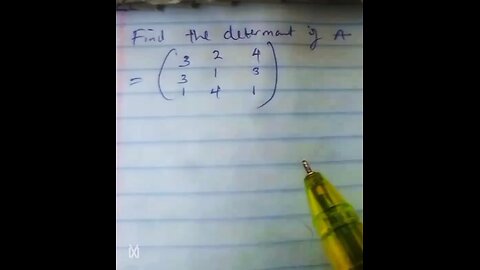 Find the determant of A
= ( 3 2 4
3 1 3
1 4 1 )